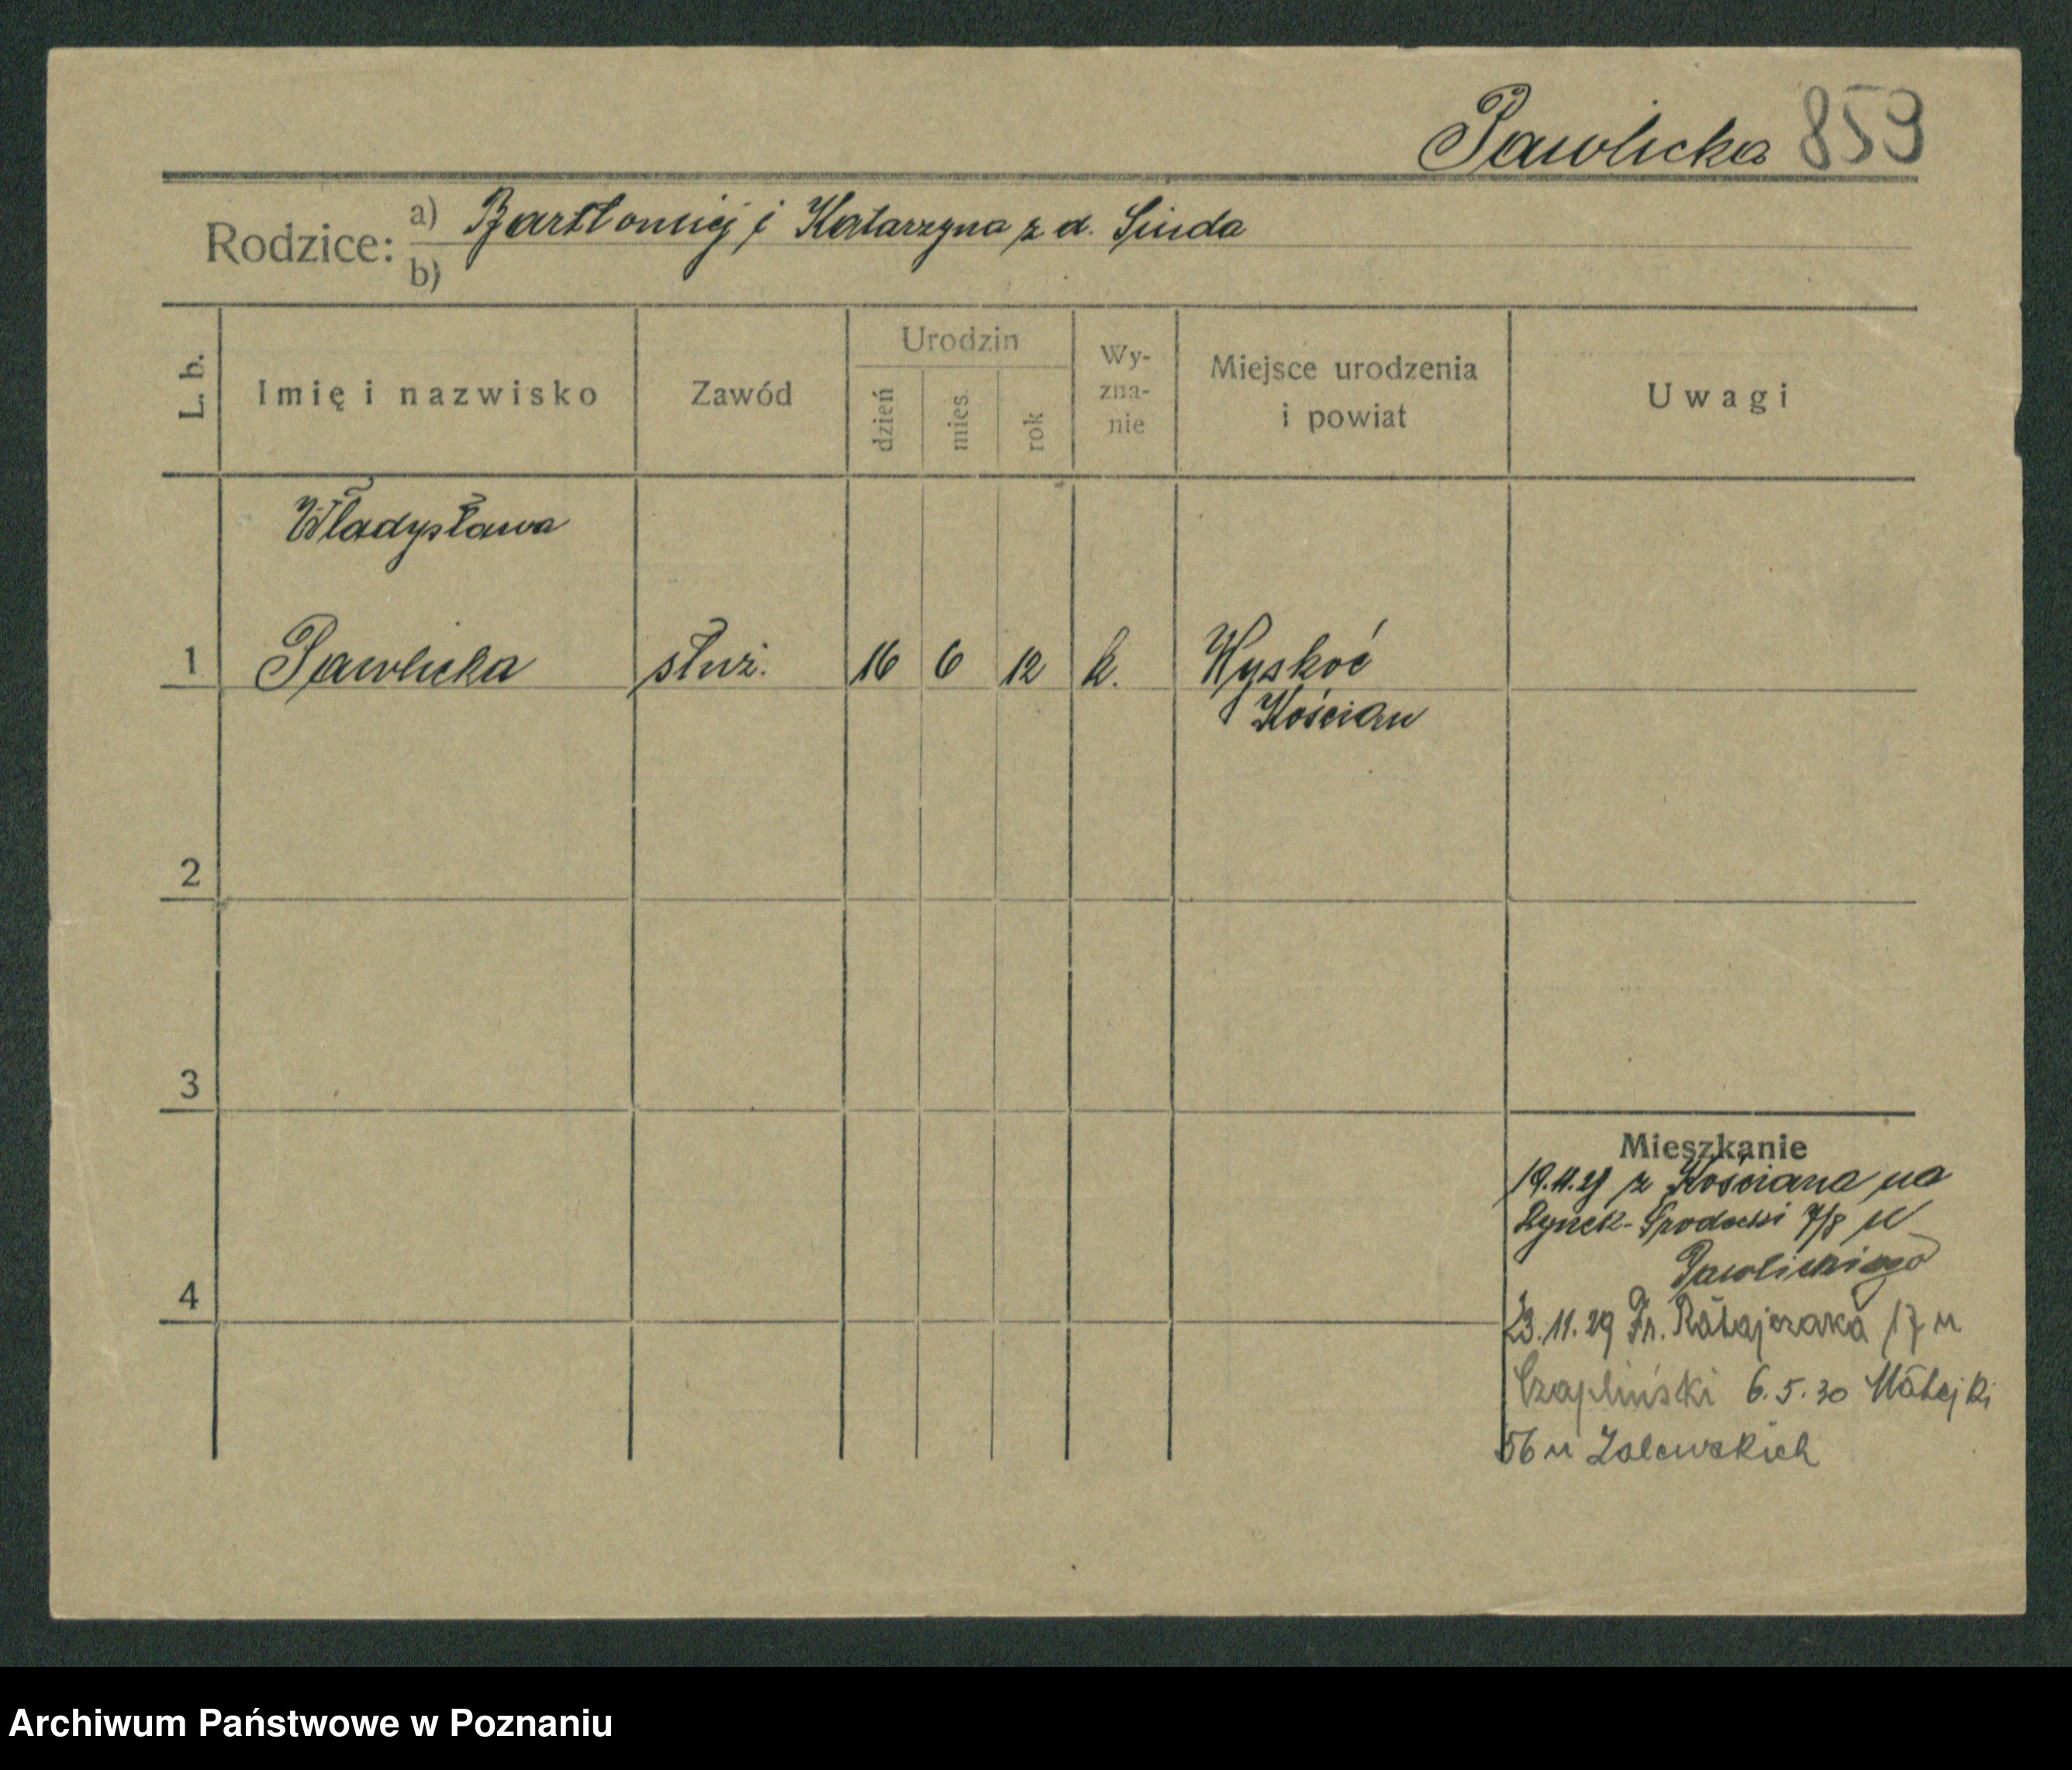 Pawlicka 859
Rodzice: a) Bartłomiej i Katarzyna z d. Sinda
b)
L. b.
Imię i nazwisko
Zawód
Urodzin
dzień
mies.
rok
Wy-
zna-
nie
Miejsce urodzenia
i powiat
Uwagi
Władysława
1 Pawlicka służ. 16 6 12 k. Wyskoć
Kościan
2
3
Mieszkanie
19.11.29 z Kościana na
Rynek-Śródecki 7/8 u
Pawlickiego
4
23.11.29 Fr. Ratajczaka 17 u
Czapliński 6.5.30 Matejki
56 u Zalewskich
Archiwum Państwowe w Poznaniu